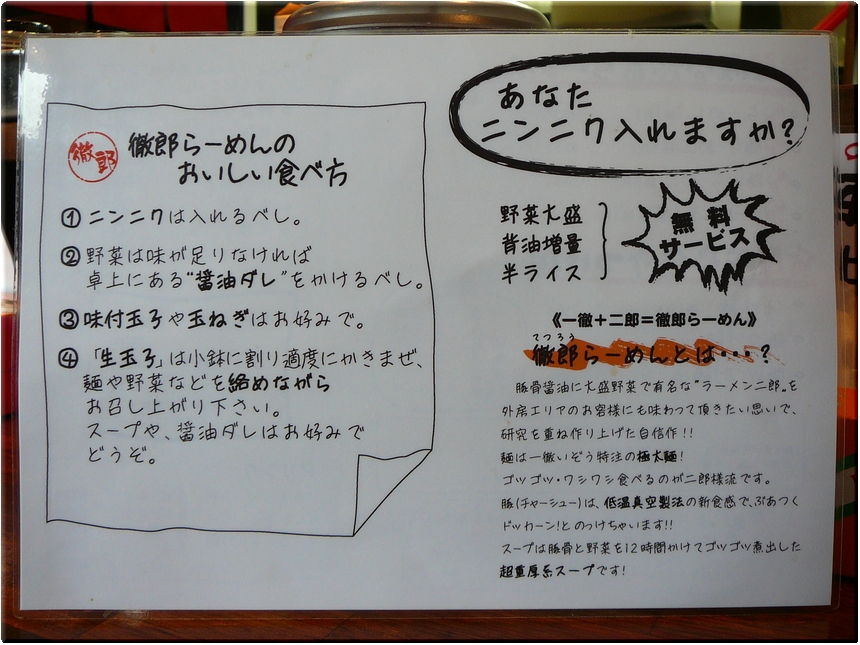 徹郎
徹郎らーめんの
おいしい食べ方
① ニンニクは入れるべし。
② 野菜は味が足りなければ
卓上にある“醤油ダレ”をかけるべし。
③ 味付玉子や玉ねぎはお好みで。
④ 「生玉子」は小鉢に割り適度にかきまぜ、
麺や野菜などを絡めながら
お召し上がり下さい。
スープや、醤油ダレはお好みで
どうぞ。
あなた
ニンニク入れますか?
野菜大盛
背油増量
半ライス
無料
サービス
《一徹+二郎=徹郎らーめん》
てつろう
徹郎らーめんとは・・・?
豚骨醤油に大盛野菜で有名な“ラーメン二郎”を
外房エリヤのお客様にも味わって頂きたい思いで、
研究を重ね作り上げた自信作!!
麺は一徹いぞう特注の極太麺!
ゴツゴツ・ワシワシ食べるのが二郎様流です。
豚(チャーシュー)は、低温真空製法の新食感で、ぶあつく
ドッカーン!とのっけちゃいます!!
スープは豚骨と野菜を12時間かけてゴツゴツ煮出した
超重厚系スープです!